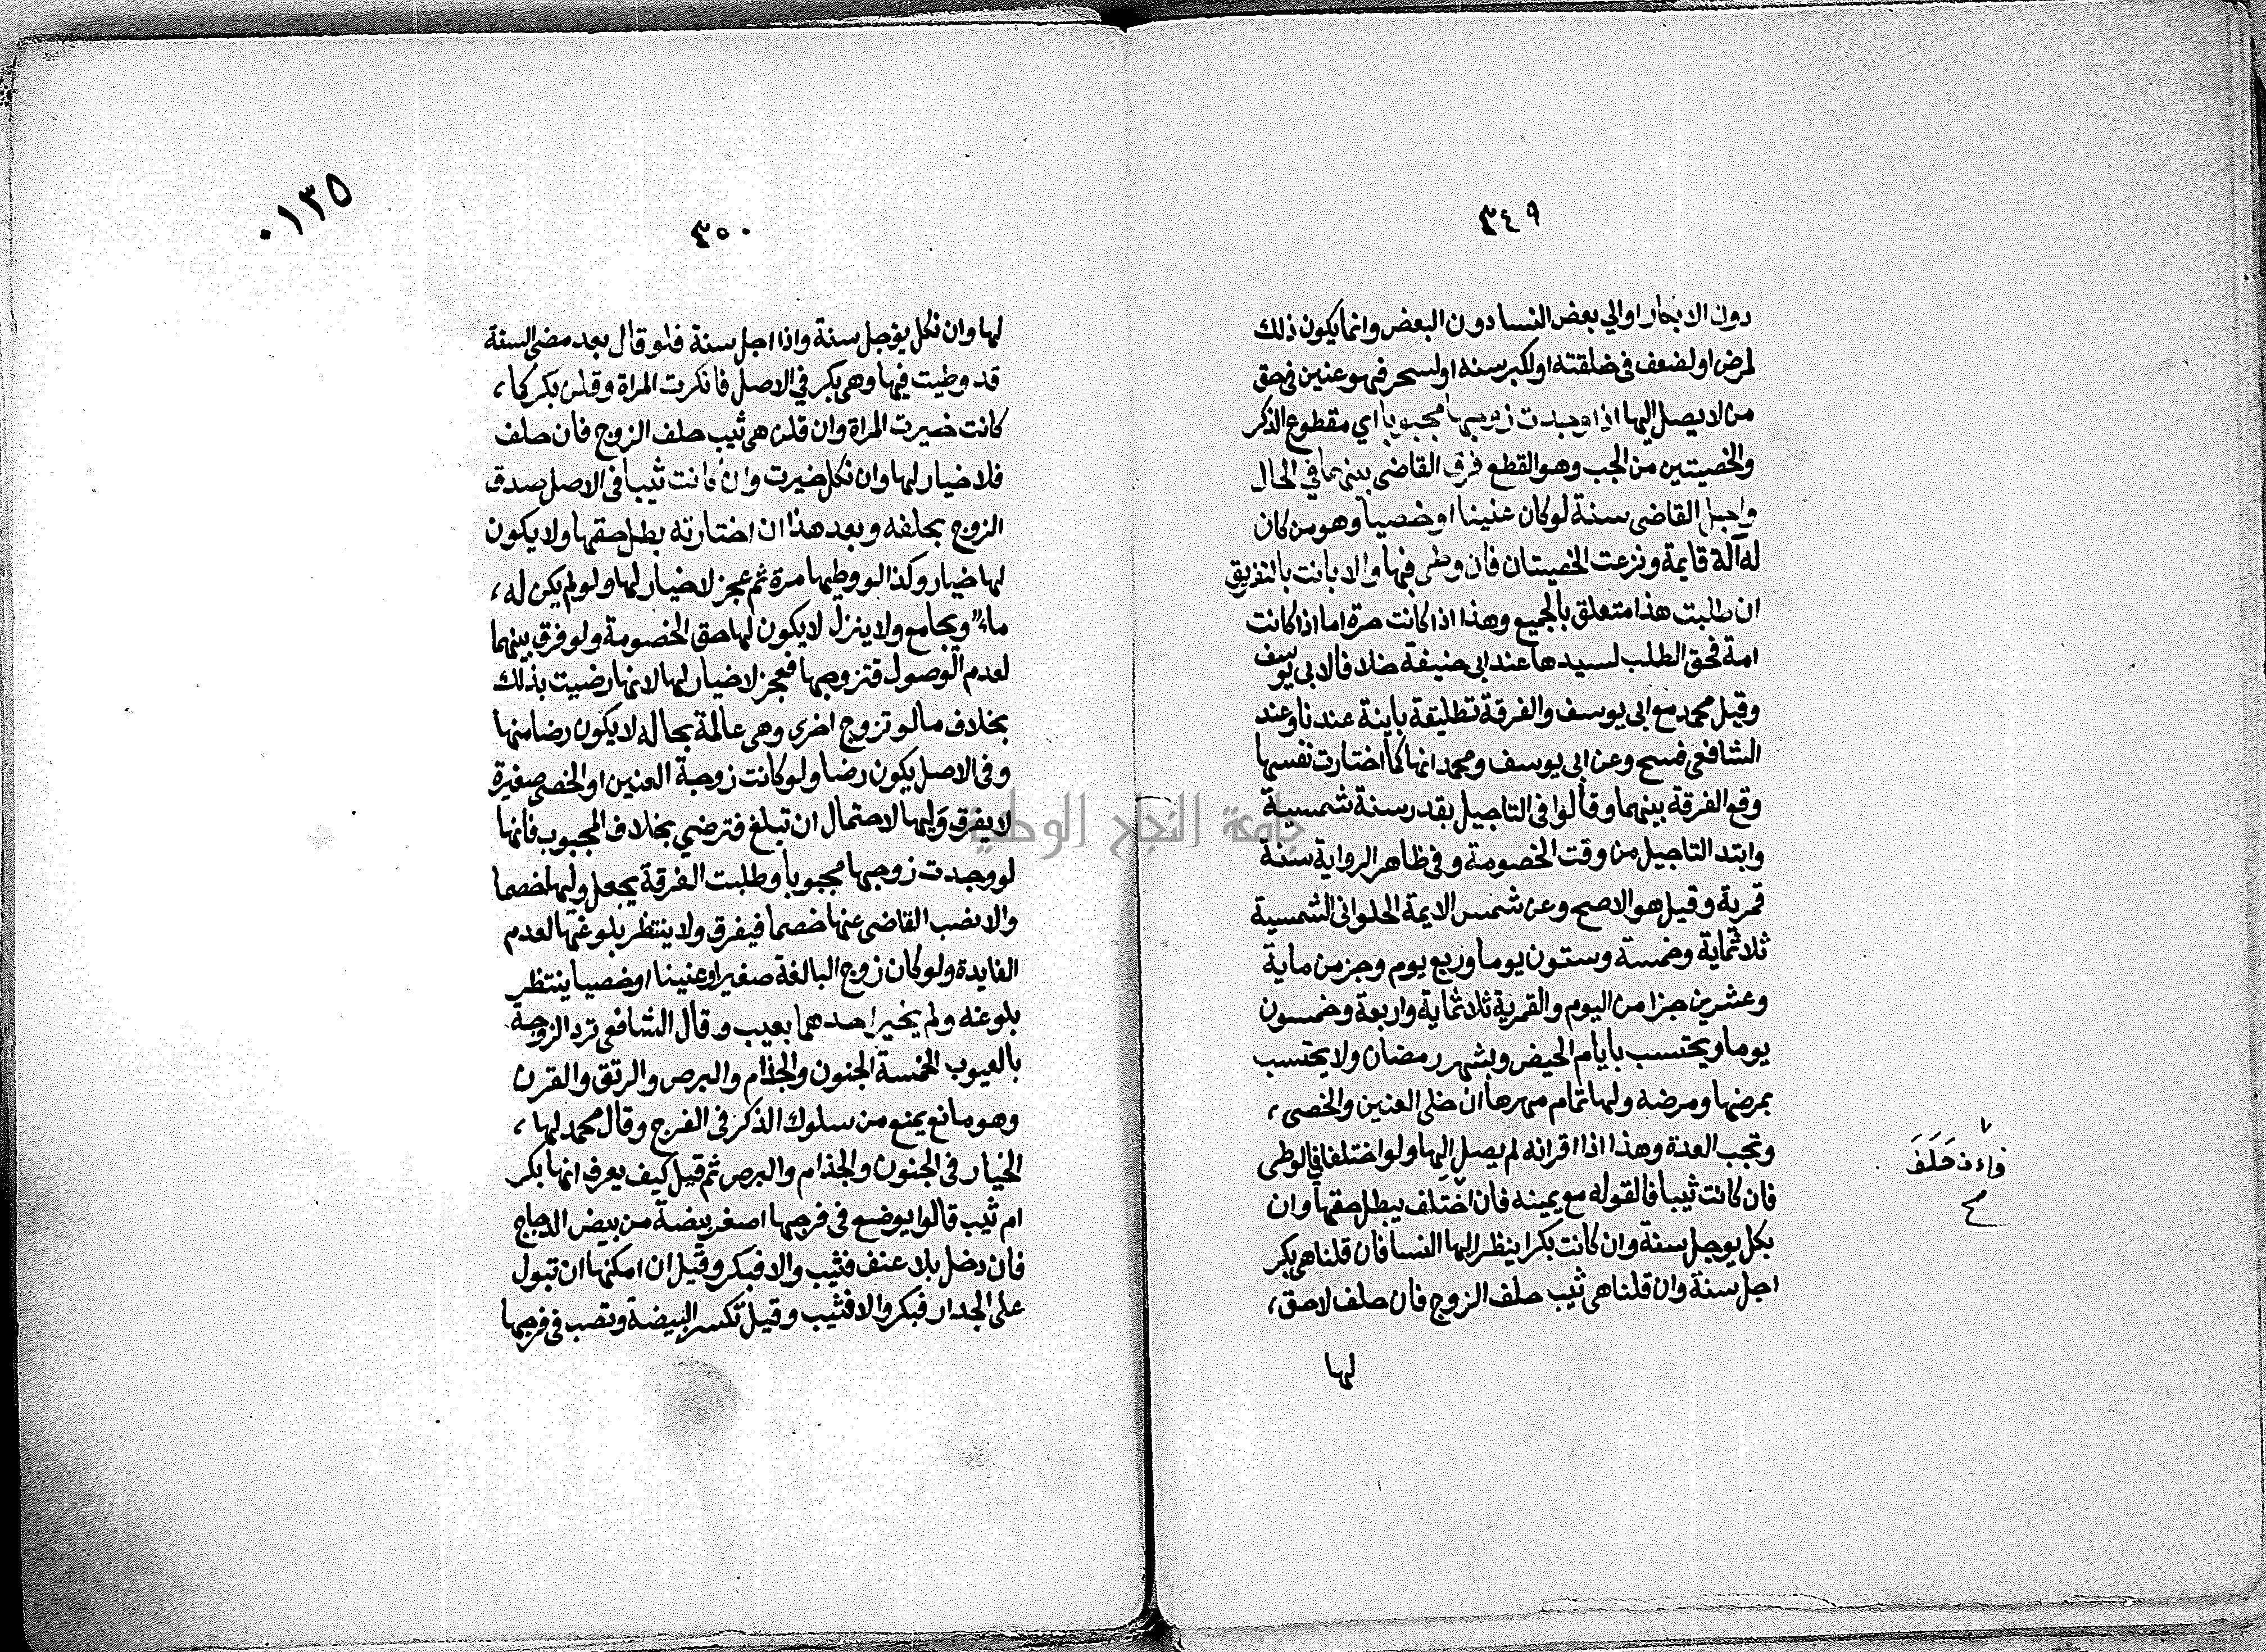 ٣٤٩
دون الابكار او الي بعض النسا دون البعض وانما يكون ذلك
لمرض او لضعف في خلقته او لكبر سنه او لسحر فهو عنين في حق
من لا يصل اليها اذا وجدت زوجها مجبوبا اي مقطوع الذكر
والخصيتين من الجب وهو القطع فرق القاضي بينهما في الحال
واجل القاضي سنة لو كان عنينا او خصيا وهو من كان
له آلة قايمة ونزعت الخصيتان فان وطي فبها والا بانت بالتفريق
ان طلبت هذا متعلق بالجميع وهذا اذا كانت حرة اما اذا كانت
امة فحق الطلب لسيدها عند ابي حنيفة خلافا لابي يوسف
وقيل محمد مع ابي يوسف والفرقة تطليقة باينة عندنا وعند
الشافعي فسخ وعن ابي يوسف ومحمد انها كما اختارت نفسها
وقع الفرقة بينهما وقالوا في التاجيل بقدر سنة شمسية
وابتد التاجيل من وقت الخصومة وفي ظاهر الرواية سنة
قمرية وقيل هو الاصح وعن شمس الايمة الحلواني الشمسية
ثلاثماية وخمسة وستون يوما وربع يوم وجز من ماية
وعشرين جزا من اليوم والقمرية ثلاثماية واربعة وخمسون
يوما ويحتسب بايام الحيض وبشهر رمضان ولا يحتسب
بمرضها ومرضه ولها تمام مهرها ان خلى العنين والخصي ،
وتجب العدة وهذا اذا اقر انه لم يصل اليها ولو اختلفا في الوطي
فان كانت ثيبا فالقوله مع يمينه فان اختلف يبطل حقها وان
بكل يوجل سنة وان كانت بكرا ينظر اليها النسا فان قلنا هي بكر
اجل سنة وان قلنا هي ثيب حلف الزوج فان حلف لا حق ،
لها
فاءن حَلَفَ
٣٥٠
٠١٣٥
لها وان نكل يؤجل سنة واذا اجل سنة فلو قال بعد مضي السنة
قد وطيت فيها وهي بكر في الاصل فانكرت المراة وقلن بكر كما ،
كانت خيرت المراة وان قلن هي ثيب حلف الزوج فان حلف
فلا خيار لها وان نكل خيرت وان كانت ثيبا في الاصل صدق
الزوج بحلفه وبعد هذا ان اختارته بطل حقها ولا يكون
لها خيار وكذا لو وطيها مرة ثم عجز لا خيار لها ولو لم يكن له ،
ماء ويجامع ولا ينزل لا يكون لها حق الخصومة ولو فرق بينهما
لعدم الوصول فتزوجها فعجز لا خيار لها لانها رضيت بذلك
بخلاف ما لو تزوج اخرى وهي عالمة بحاله لا يكون رضا منها
وفي الاصل يكون رضا ولو كانت زوجة العنين او الخصي صغيرة
لا يفرق وليها لاحتمال ان تبلغ فترضي بخلاف المجبوب فانها
لو وجدت زوجها مجبوبا وطلبت الفرقة يجعل وليها خصما
والا نصب القاضي عنها خصما فيفرق ولا ينتظر بلوغها لعدم
الفايدة ولو كان زوج البالغة صغيرا وعنينا او خصيا ينتظر
بلوغه ولم يخير احدهما بعيب وقال الشافعي ترد الزوجة
بالعيوب الخمسة الجنون والجذام والبرص والرتق والقرن
وهو مانع يمنع من سلوك الذكر في الفرج وقال محمد لها ،
الخيار في الجنون والجذام والبرص ثم قيل كيف يعرف انها بكر
ام ثيب قالوا يوضع في فرجها اصغر بيضة من بيض الدجاج
فان دخل بلا عنف فثيب والا فبكر وقيل ان امكنها ان تبول
على الجدار فبكر والا فثيب وقيل تكسر البيضة وتصب في فرجها
جامعة النجاح الوطنية